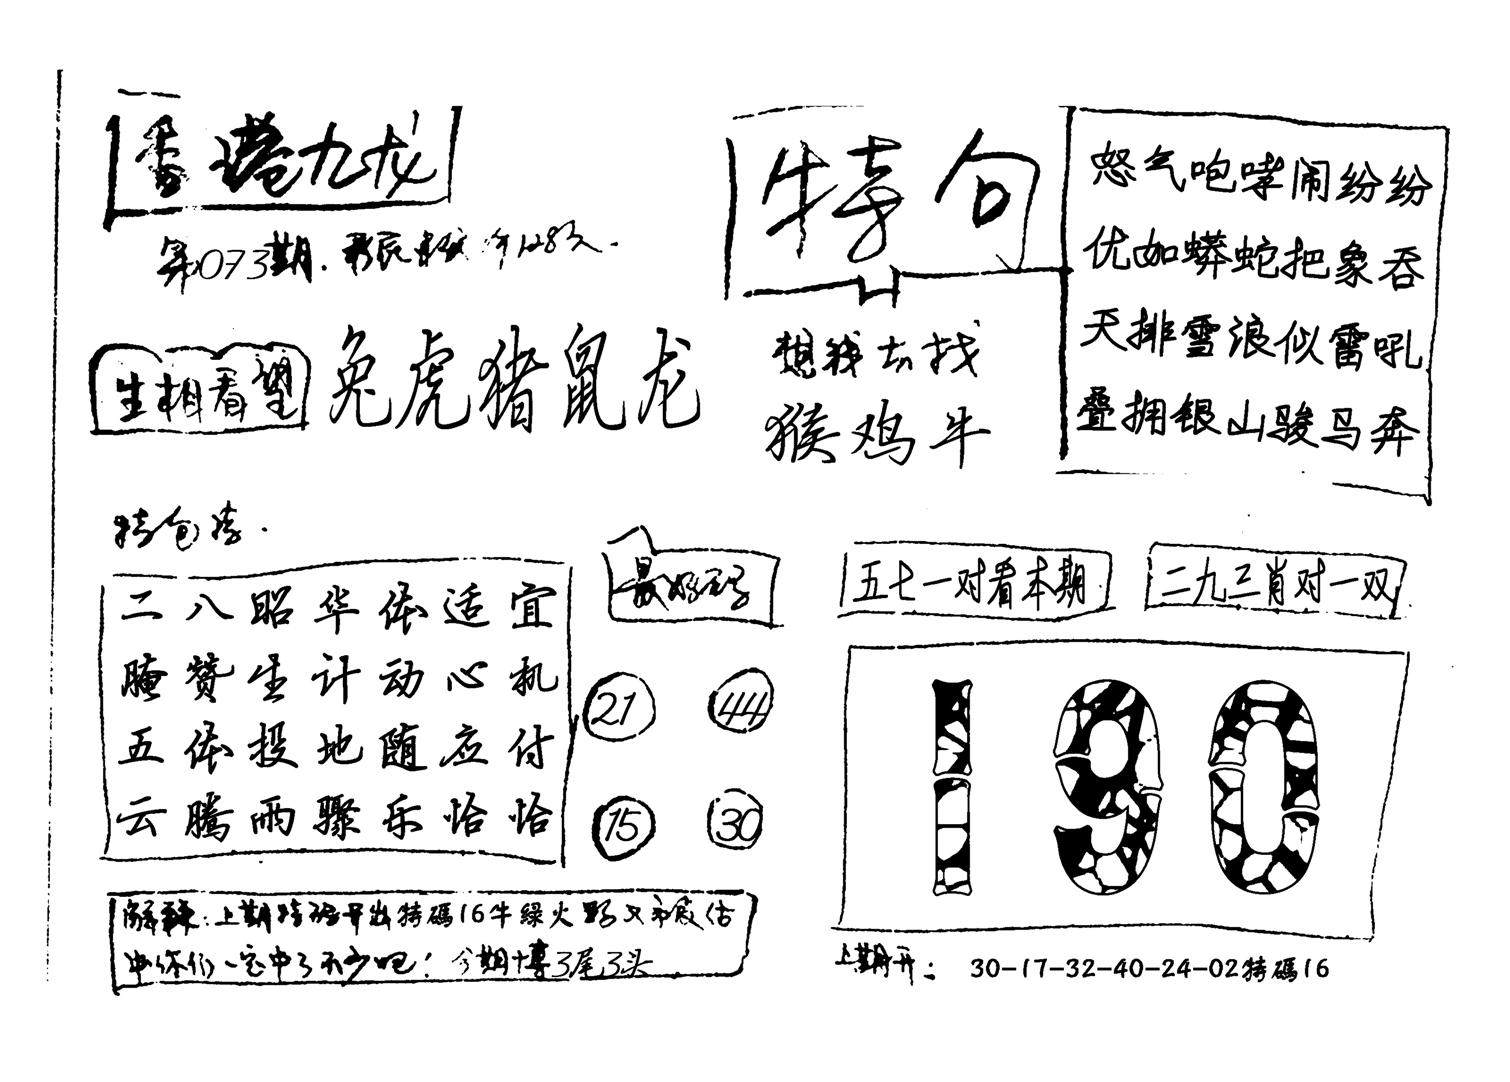 香港九龙
第073期.
生相看望
兔虎猪鼠龙
特句
想钱去找
猴鸡牛
怒气咆哮闹纷纷
优如蟒蛇把象吞
天排雪浪似雷吼
叠拥银山骏马奔
二八昭华体适宜
腌赞生计动心机
五体投地随应付
云腾雨骤乐恰恰
最好码
21 44
15 30
五七一对看本期
二九三肖对一双
190
上期特码开出特碼16牛綠火
中了不少吧！今期博3尾3头
上期开: 30-17-32-40-24-02特碼16